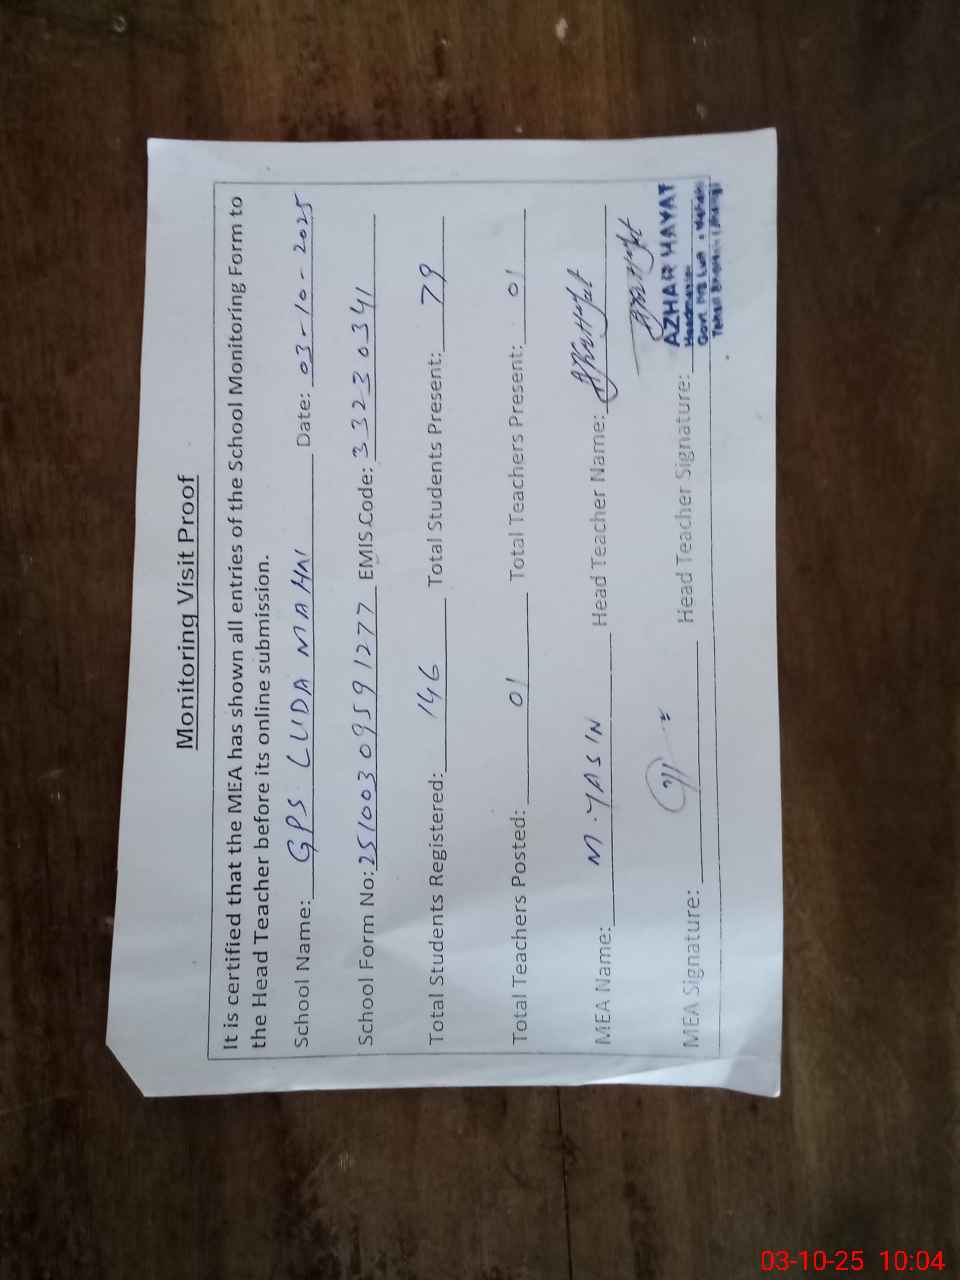 Monitoring Visit Proof
It is certified that the MEA has shown all entries of the School Monitoring Form to
the Head Teacher before its online submission.
School Name: GPS LUDA MAHNI Date: 03-10-2025
School Form No: 25100309591277 EMIS Code: 33230341
Total Students Registered: 146 Total Students Present: 79
Total Teachers Posted: 01 Total Teachers Present: 01
MEA Name: M. YASIN Head Teacher Name:
MEA Signature: Head Teacher Signature:
AZHAR HAYAT
Headmaster
Govt.
03-10-25 10:04